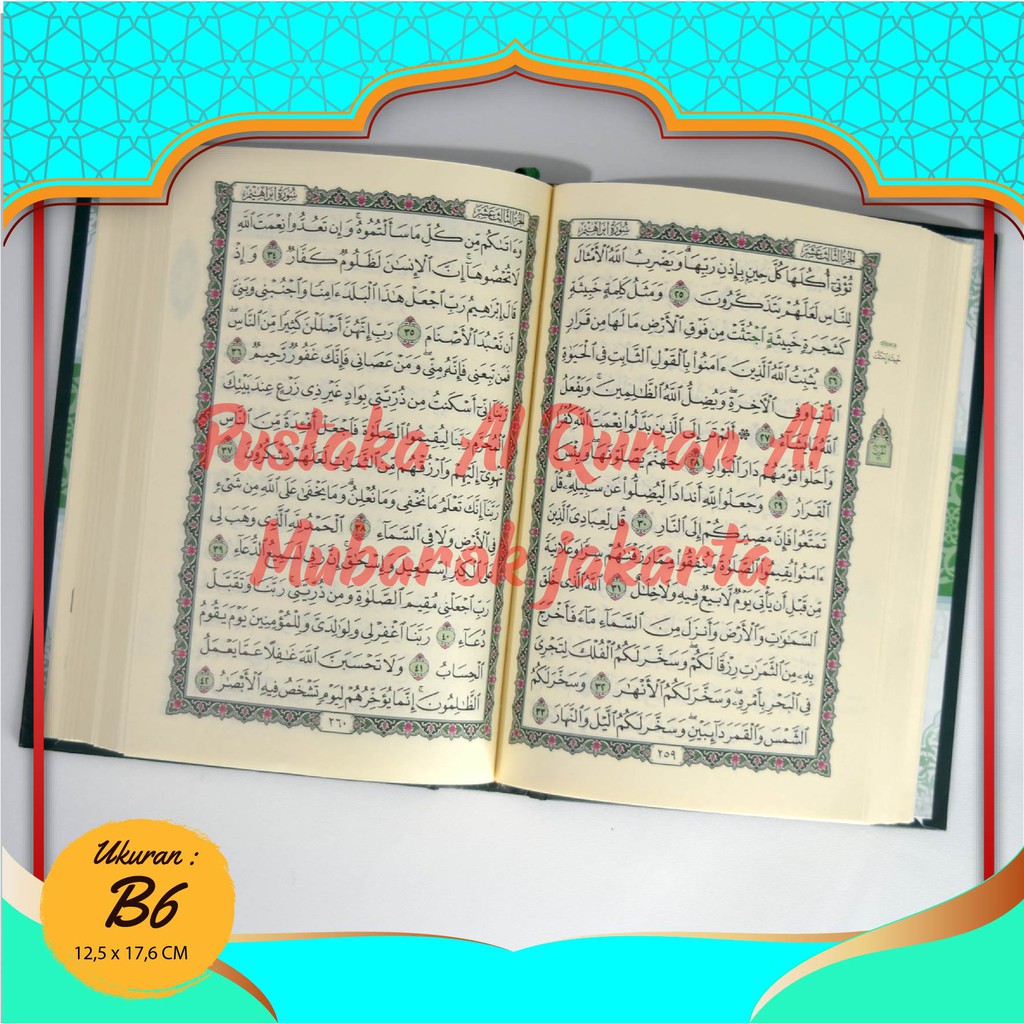 سُورَةُ إِبْرَاهِيمَ
الجُزْءُ الثَّالِثَ عَشَرَ
تُؤْتِىٓ أُكُلَهَا كُلَّ حِينٍۭ بِإِذْنِ رَبِّهَا ۗ وَيَضْرِبُ ٱللَّهُ ٱلْأَمْثَالَ
لِلنَّاسِ لَعَلَّهُمْ يَتَذَكَّرُونَ ٢٥ وَمَثَلُ كَلِمَةٍ خَبِيثَةٍ
كَشَجَرَةٍ خَبِيثَةٍ ٱجْتُثَّتْ مِن فَوْقِ ٱلْأَرْضِ مَا لَهَا مِن قَرَارٍ
٢٦ يُثَبِّتُ ٱللَّهُ ٱلَّذِينَ ءَامَنُوا۟ بِٱلْقَوْلِ ٱلثَّابِتِ فِى ٱلْحَيَوٰةِ
ٱلدُّنْيَا وَفِى ٱلْءَاخِرَةِ ۖ وَيُضِلُّ ٱللَّهُ ٱلظَّٰلِمِينَ ۚ وَيَفْعَلُ
ٱللَّهُ مَا يَشَآءُ ٢٧ ۞ أَلَمْ تَرَ إِلَى ٱلَّذِينَ بَدَّلُوا۟ نِعْمَتَ ٱللَّهِ كُفْرًا
وَأَحَلُّوا۟ قَوْمَهُمْ دَارَ ٱلْبَوَارِ ٢٨ جَهَنَّمَ يَصْلَوْنَهَا ۖ وَبِئْسَ
ٱلْقَرَارُ ٢٩ وَجَعَلُوا۟ لِلَّهِ أَندَادًا لِّيُضِلُّوا۟ عَن سَبِيلِهِۦ ۗ قُلْ
تَمَتَّعُوا۟ فَإِنَّ مَصِيرَكُمْ إِلَى ٱلنَّارِ ٣٠ قُل لِّعِبَادِىَ ٱلَّذِينَ
ءَامَنُوا۟ يُقِيمُوا۟ ٱلصَّلَوٰةَ وَيُنفِقُوا۟ مِمَّا رَزَقْنَٰهُمْ سِرًّا وَعَلَانِيَةً
مِّن قَبْلِ أَن يَأْتِىَ يَوْمٌ لَّا بَيْعٌ فِيهِ وَلَا خِلَٰلٌ ٣١ ٱللَّهُ ٱلَّذِى خَلَقَ
ٱلسَّمَٰوَٰتِ وَٱلْأَرْضَ وَأَنزَلَ مِنَ ٱلسَّمَآءِ مَآءً فَأَخْرَجَ
بِهِۦ مِنَ ٱلثَّمَرَٰتِ رِزْقًا لَّكُمْ ۖ وَسَخَّرَ لَكُمُ ٱلْفُلْكَ لِتَجْرِىَ
فِى ٱلْبَحْرِ بِأَمْرِهِۦ ۖ وَسَخَّرَ لَكُمُ ٱلْأَنْهَٰرَ ٣٢ وَسَخَّرَ لَكُمُ
ٱلشَّمْسَ وَٱلْقَمَرَ دَآئِبَيْنِ ۖ وَسَخَّرَ لَكُمُ ٱلَّيْلَ وَٱلنَّهَارَ ٣٣
٢٥٩
سُورَةُ إِبْرَاهِيمَ
الجُزْءُ الثَّالِثَ عَشَرَ
وَءَاتَىٰكُم مِّن كُلِّ مَا سَأَلْتُمُوهُ ۚ وَإِن تَعُدُّوا۟ نِعْمَتَ ٱللَّهِ
لَا تُحْصُوهَآ ۗ إِنَّ ٱلْإِنسَٰنَ لَظَلُومٌ كَفَّارٌ ٣٤ وَإِذْ
قَالَ إِبْرَٰهِيمُ رَبِّ ٱجْعَلْ هَٰذَا ٱلْبَلَدَ ءَامِنًا وَٱجْنُبْنِى وَبَنِىَّ
أَن نَّعْبُدَ ٱلْأَصْنَامَ ٣٥ رَبِّ إِنَّهُنَّ أَضْلَلْنَ كَثِيرًا مِّنَ ٱلنَّاسِ ۖ
فَمَن تَبِعَنِى فَإِنَّهُۥ مِنِّى ۖ وَمَنْ عَصَانِى فَإِنَّكَ غَفُورٌ رَّحِيمٌ ٣٦
رَّبَّنَآ إِنِّىٓ أَسْكَنتُ مِن ذُرِّيَّتِى بِوَادٍ غَيْرِ ذِى زَرْعٍ عِندَ بَيْتِكَ
ٱلْمُحَرَّمِ رَبَّنَا لِيُقِيمُوا۟ ٱلصَّلَوٰةَ فَٱجْعَلْ أَفْـِٔدَةً مِّنَ ٱلنَّاسِ
تَهْوِىٓ إِلَيْهِمْ وَٱرْزُقْهُم مِّنَ ٱلثَّمَرَٰتِ لَعَلَّهُمْ يَشْكُرُونَ ٣٧
رَبَّنَآ إِنَّكَ تَعْلَمُ مَا نُخْفِى وَمَا نُعْلِنُ ۗ وَمَا يَخْفَىٰ عَلَى ٱللَّهِ مِن شَىْءٍ
فِى ٱلْأَرْضِ وَلَا فِى ٱلسَّمَآءِ ٣٨ ٱلْحَمْدُ لِلَّهِ ٱلَّذِى وَهَبَ لِى
عَلَى ٱلْكِبَرِ إِسْمَٰعِيلَ وَإِسْحَٰقَ ۚ إِنَّ رَبِّى لَسَمِيعُ ٱلدُّعَآءِ ٣٩
رَبِّ ٱجْعَلْنِى مُقِيمَ ٱلصَّلَوٰةِ وَمِن ذُرِّيَّتِى ۚ رَبَّنَا وَتَقَبَّلْ
دُعَآءِ ٤٠ رَبَّنَا ٱغْفِرْ لِى وَلِوَٰلِدَىَّ وَلِلْمُؤْمِنِينَ يَوْمَ يَقُومُ
ٱلْحِسَابُ ٤١ وَلَا تَحْسَبَنَّ ٱللَّهَ غَٰفِلًا عَمَّا يَعْمَلُ
ٱلظَّٰلِمُونَ ۚ إِنَّمَا يُؤَخِّرُهُمْ لِيَوْمٍ تَشْخَصُ فِيهِ ٱلْأَبْصَٰرُ ٤٢
٢٦٠
Pustaka Al Quran Al
Mubarok jakarta
Ukuran :
B6
12,5 x 17,6 CM